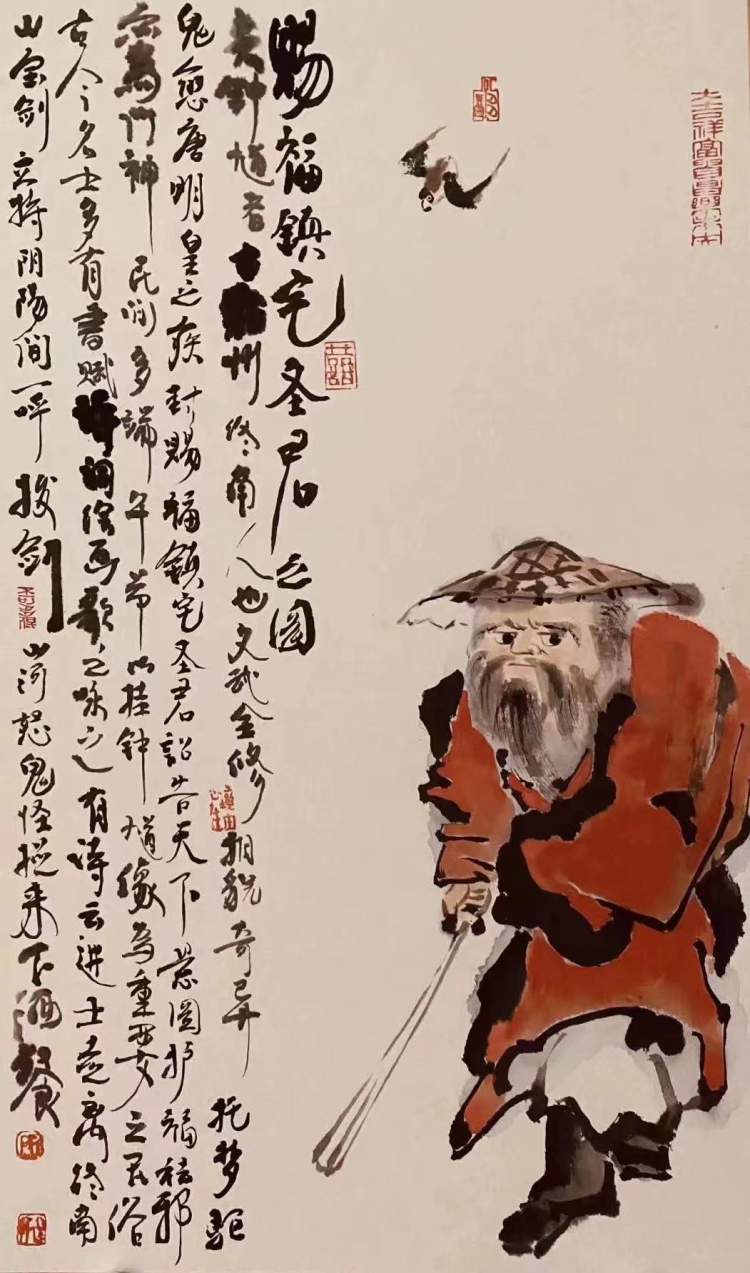 赐福镇宅圣君之图
夫钟馗者古雍州终南人也文武全修相貌奇异托梦驱
鬼愈唐明皇之疾封赐福镇宅圣君诏告天下悬图护福祛邪
亦为门神民间多端午节以挂钟馗像为重要之民俗
古今之名士多有书赋诗词绘画歌之咏之有诗云进士走离终南
山宝剑立持阴阳间一呼拔剑山河怒鬼怪捉来下酒餐